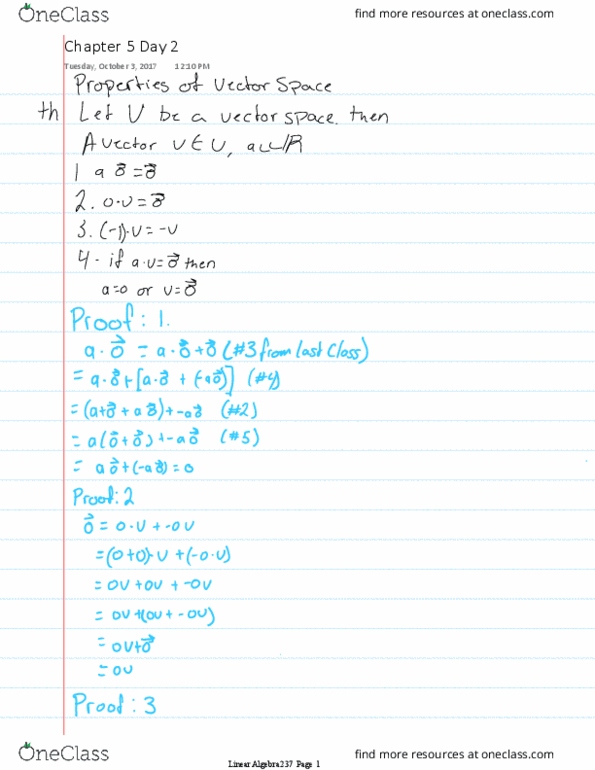 OneClass
find more resources at oneclass.com
Chapter 5 Day 2
Tuesday, October 3, 2017 12:10 PM
Properties of Vector Space
th Let V be a vector space. then
A vector v ∈ V, a ∈ ℝ
1 a 0⃗ = 0⃗
2. 0·v = 0⃗
3. (-1)·v = -v
4. if a·v = 0⃗ then
a=0 or v=0⃗
Proof: 1.
a·0⃗ = a·0⃗+0⃗ (#3 from last class)
= a·0⃗+[a·0⃗ + (-a0⃗)] (#4)
= (a+0⃗ + a0⃗)+-a0⃗ (#2)
= a(0⃗+0⃗)+-a0⃗ (#5)
= a0⃗+(-a0⃗) = 0
Proof: 2
0⃗ = 0·v + -0v
= (0+0)·v + (-0·v)
= 0v+0v + -0v
= 0v+(0v+-0v)
= 0v+0⃗
= 0v
Proof: 3
OneClass
Linear Algebra237 Page 1
find more resources at oneclass.com